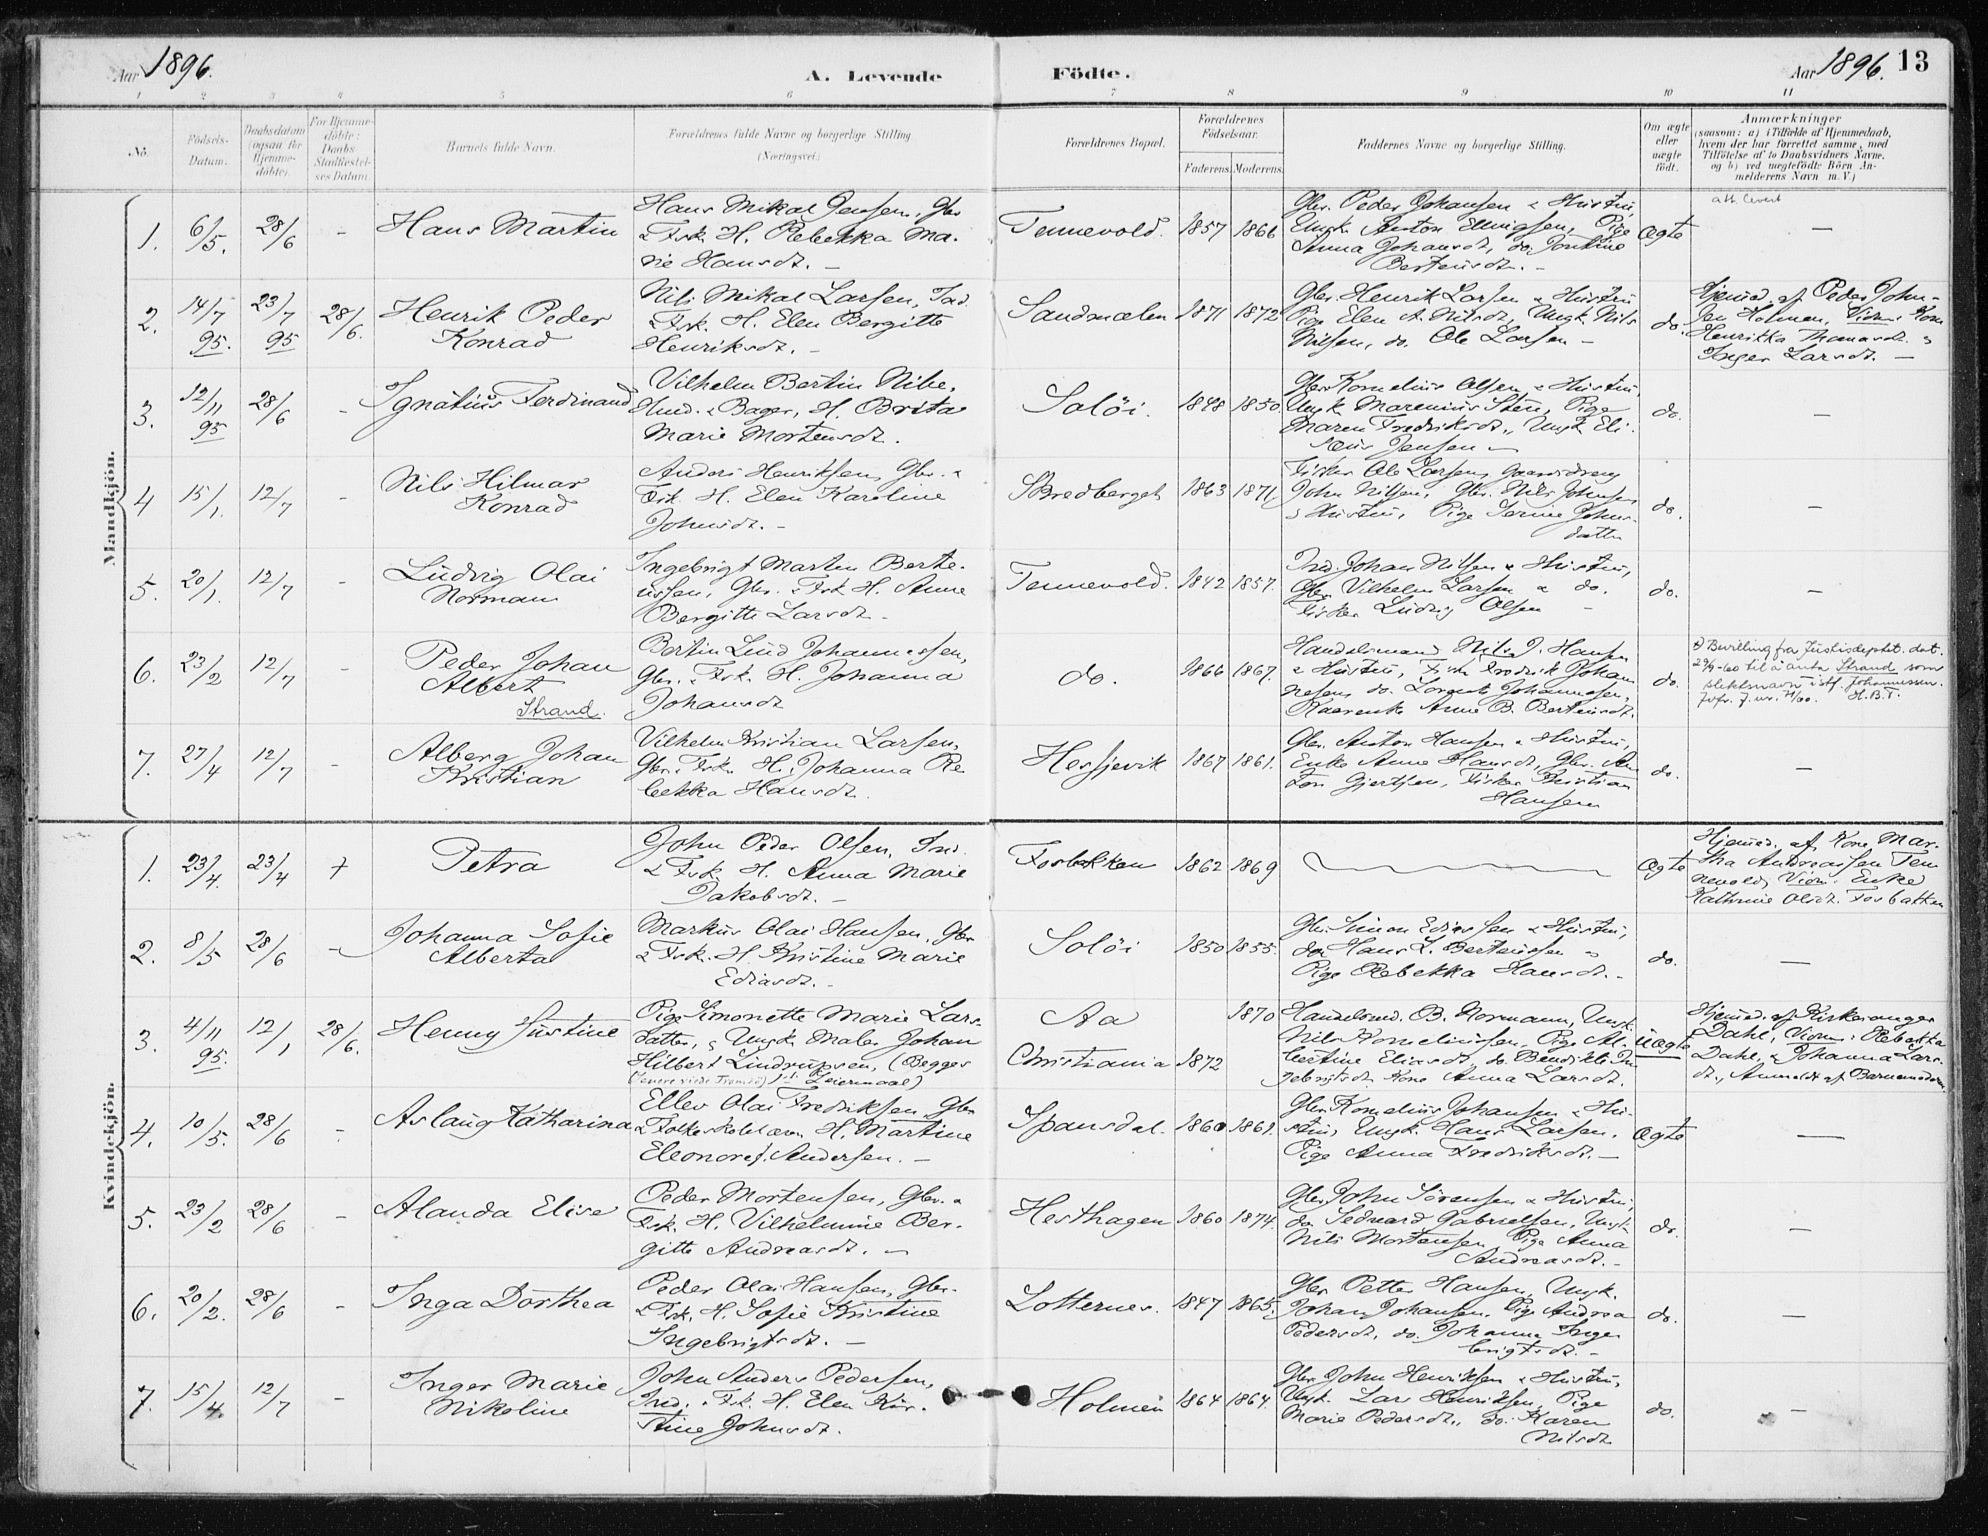 Aar 1896.
A. Levende
Födte.
Aar 1896. 13
1 2 3 4 5 6 7 8 9 10 11
No.
Födsels-
Datum.
Daabsdatum
(ogsaa for
Hjemme-
döbte).
For Hjemme-
döbte:
Daabs
Stadfæstel-
ses Datum.
Barnets fulde Navn.
Forældrenes fulde Navne og borgerlige Stilling
(Næringsvei.)
Forældrenes Bopæl.
Forældrenes
Födselsaar.
Faderens. Moderens.
Faddernes Navne og borgerlige Stilling.
Om ægte
eller
uægte
födt.
Anmærkninger
(saasom: a) i Tilfælde af Hjemmedaab,
hvem der har forrettet samme, med
Tilföielse af to Daabsvidners Navne.
og b) ved uægtefödte Börn An-
melderens Navn m. V.)
Mandkjön.
1. 6/5. 28/6 -
Hans Martin
Hans Mikal Jensen, Gbr
& Fsk. H. Rebekka Ma-
rie Hansdt. -
Tennevold. 1857 1866
Gbr. Peder Johansen & Hustru,
Ungk. Anton Ellingsen, Pige
Anna Johansdt, do. Jontine
Berteusdt. -
Ægte
att. levert
-
2. 14/7 95. 23/7 95 28/6.
Henrik Peder
Konrad
Nils Mikal Larsen, Ind.
& Fsk. H. Elen Bergitte
Henriksdt. -
Sandmælen 1871 1872
Gbr. Henrik Larsen & Hustru
Pige Elen A. Nilsdt, Ungk. Nils
Nilsen, do. Ole Larsen -
do.
Hjemmed. af Peder John-
sen Holmen, Vidn: Kone
Henrikka Thomasdt. &
Inger Larsdt. -
3. 12/11 95 28/6 -
Ignatius Ferdinand
Vilhelm Bertin Nibe,
Hmd. & Bager, H. Brita
Marie Mortensdt.
Solöi. 1848 1850.
Gbr. Kornelius Olsen & Hustru,
Ungk. Marenius Sten, Pige
Maren Fredriksdt., Ungk. Eli-
seus Jensen -
do.
-
4 15/1. 12/7 -
Nils Hilmar
Konrad
Anders Henriksen, Gbr. &
Fsk. H. Elen Karoline
Johnsdt. -
Bredberget 1863 1871
Fisker Ole Larsen, Gaardsdreng
John Nilsen, Gbr. Nils Johnsen
& Hustru, Pige Serine Johns-
datter
do.
-
5. 20/1. 12/7 -
Ludvig Olai
Norman
Ingebrigt Marten Berte-
ussen, Gbr. & Fsk H. Anne
Bergitte Larsdt.
Tennevold. 1842 1857.
Ind. Johan Nilsen & Hustru,
Gbr. Vilhelm Larsen & do.
Fisker Ludvig Olsen -
do.
-
6. 23/2 12/7 -
Peder Johan
Albert
Strand.
Bertin Lind Johannessen,
Gbr. & Fsk. H. Johanna
Johansdt
do. 1866 1867.
Handelsmand Nils J. Hansen
& Hustru, Fisk Fredrik Johan
nesen, do. Lorents Johannesen,
Anne B. Berteusdt.
do.
Bevilling fra Justisdeptet. dat.
29/9-60 til å anta Strand som
slektsnavn istf. Johannessen.
Jvfr. J. nr. 71/60. H.B.T.
7. 27/4 12/7 -
Alberg Johan
Kristian
Vilhelm Kristian Larsen,
Gbr. & Fsk. H. Johanna Re-
bekka Hansdt.
Hessjevik 1867 1861.
Gbr. Anton Hansen & Hustru,
Enke Anne Hansdt, Gbr. An
ton Gjertsen, Fisker Kristian
Hansen
do.
-
Kvindekjön.
1. 23/4. 23/4 +
Petra
John Peder Olsen, Ind.
& Fsk. H. Anna Marie
Jakobsdt. -
Fosbakken 1862 1869
Ægte
Hjemmed. af Kone Mar-
tha Andreassen Ten
nevold, Vidn. Enke
Kathrine Olsdt. Fosbakken
2. 8/5 28/6 -
Johanna Sofie
Alberta
Markus Olai Hansen, Gbr.
& Fsk. H. Kristine Marie
Ediasdt. -
Solöi 1850 1855.
Gbr. Simon Ediassen & Hustru,
do Hans L. Berteussen &
Pige Rebekka Hansdt. -
do.
-
3. 4/11 95. 12/1 28/6.
Henny Justine
Pige Simonette Marie Lars-
datter, & Ungk. Maler Johan
Hilbert Lindrupsen, (Begges
(Senere viede Tromsö) 1ste Leiermaal)
Aa
Christiania 1870 1872
Handelsmd. B. Normann, Ungk.
Nils Korneliussen, Pige Al-
bertine Eliasdt, do Bendikte In
gebrigtsdt. Kone Anna Larsdt.
Uægte
Hjemmed. af Kirkesanger
Dahl, Vidn: Rebekka
Dahl, & Johanna Lars-
dt., Anmeldt af Barnemoderen.
4. 10/5. 28/6 -
Aslaug Katharina
Ellev Olai Fredriksen, Gbr
& Folkeskolelærer, H. Martine
Eleonore f. Andersen. -
Spansdal. 1860 1861.
Gbr. Kornelius Johansen & Hu-
stru, Ungk. Hans Larsen,
Pige Anna Fredriksdt. -
Ægte
-
5. 23/2 28/6 -
Alanda Elise
Peder Mortensen, Gbr. &
Fsk. H. Vilhelmine Ber-
gitte Andreasdt. -
Hesthagen 1860 1874.
Gbr. John Sörensen & Hustru,
do. Sedvard Gabrielsen, Ungk.
Nils Mortensen, Pige Anna
Andreasdt. -
do.
-
6. 20/2. 28/6 -
Inga Dorthea
Peder Olai Hansen, Gbr.
& Fsk. H. Sofie Kristine
Ingebrigtsdt. -
Lotternes. 1847 1865.
Gbr. Petter Hansen, Ungk.
Johan Johansen, Pige Andrea
Pedersdt, do. Johanna Inge
brigtsdt. -
do.
-
7. 15/4. 12/7 -
Inger Marie
Nikoline
John Anders Pedersen,
Ind. & Fsk. H. Elen Kir-
stine Johnsdt.
Holmen 1864 1864.
Gbr. John Henriksen & Hustru,
Ungk. Lars Henriksen, Pige
Marie Pedersdt., do. Karen
Nilsdt
do.
-